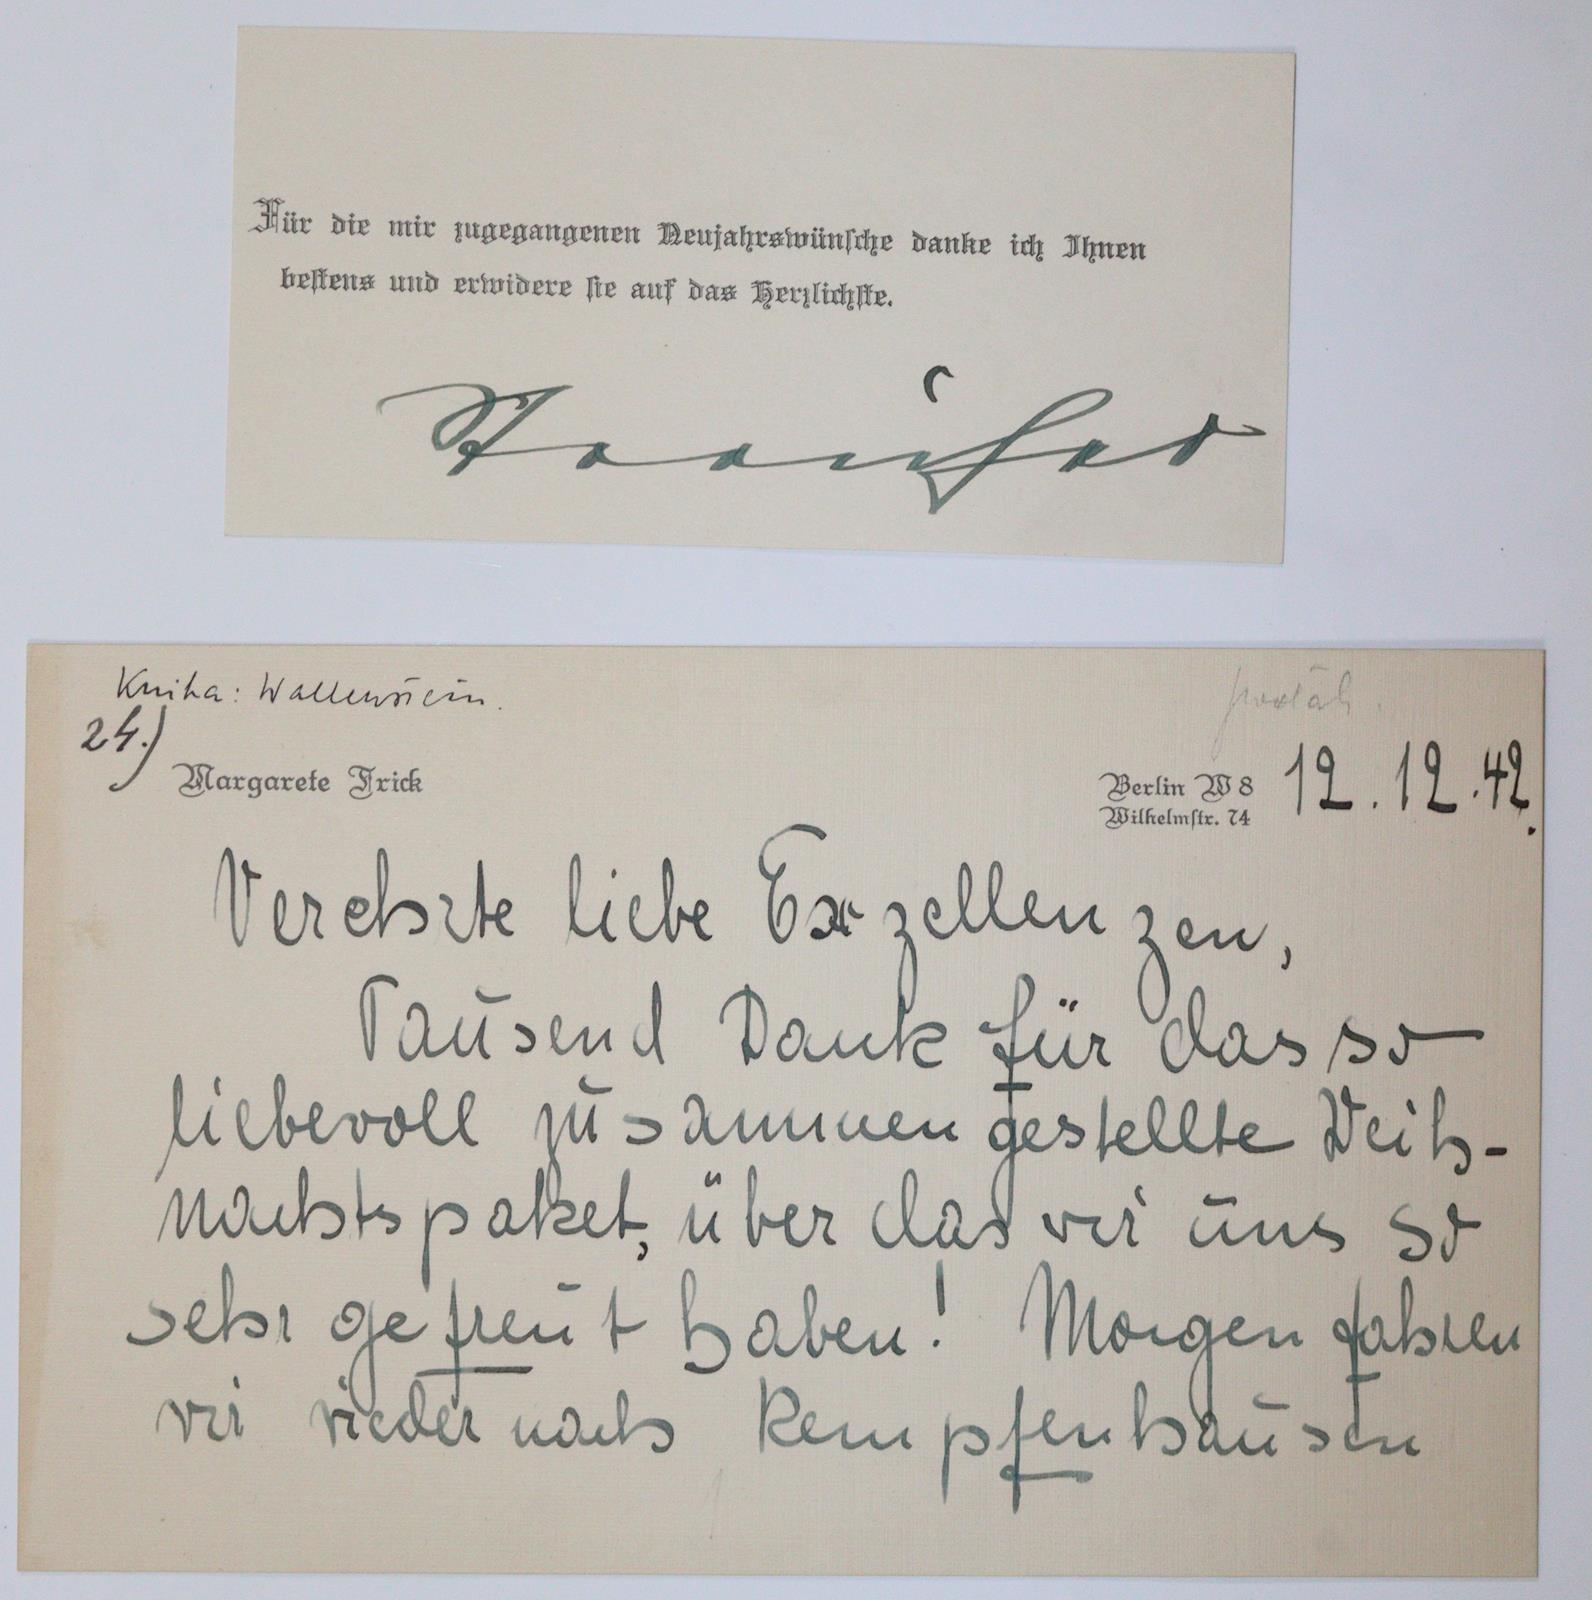 Für die mir zugegangenen Neujahrswünsche danke ich Ihnen
bestens und erwidere sie auf das Herzlichste.
Kniha: Wallenstein.
24.)
Margarete Frick
Berlin W 8
Wilhelmstr. 74
12.12.42.
Verehrte liebe Exzellenzen,
Tausend Dank für das so
liebevoll zusammengestellte Weih-
nachtspaket, über das wir uns so
sehr gefreut haben! Morgen fahren
wir wieder nach Kempfenhausen